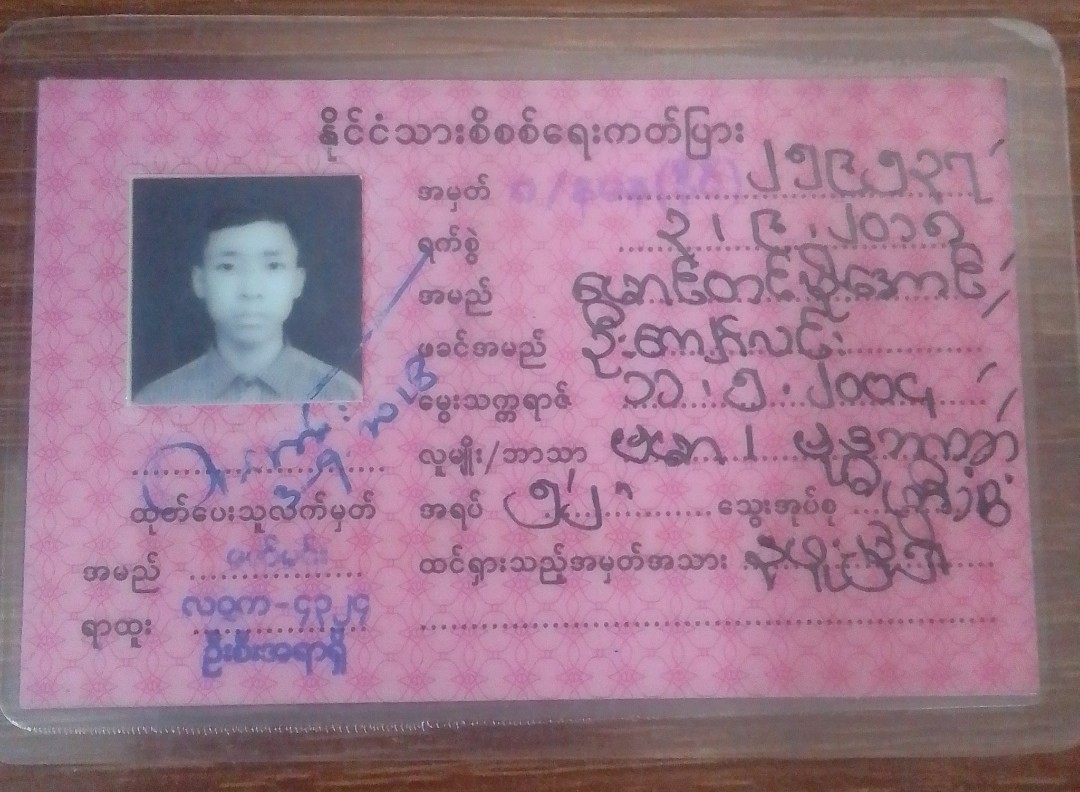 နိုင်ငံသားစိစစ်ရေးကတ်ပြား
အမှတ် ၂၅၉၅၃၇
ရက်စွဲ ၃၊ ၉ ၊၂၀၁၅
အမည် မောင်တင်မျိုးအောင်
ဖခင်အမည် ဦးကျော်လင်း
မွေးသက္ကရာဇ် ၁၁.၅.၂၀၀၄
လူမျိုး/ဘာသာ ဗမာ ၊ ဗုဒ္ဓဘာသာ
အရပ် ၅'၂" သွေးအုပ်စု
ထင်ရှားသည့်အမှတ်အသား
ထုတ်ပေးသူလက်မှတ်
အမည်
ရာထူး လဝက-၄၃၂၄
ဦးစီးအရာရှိ